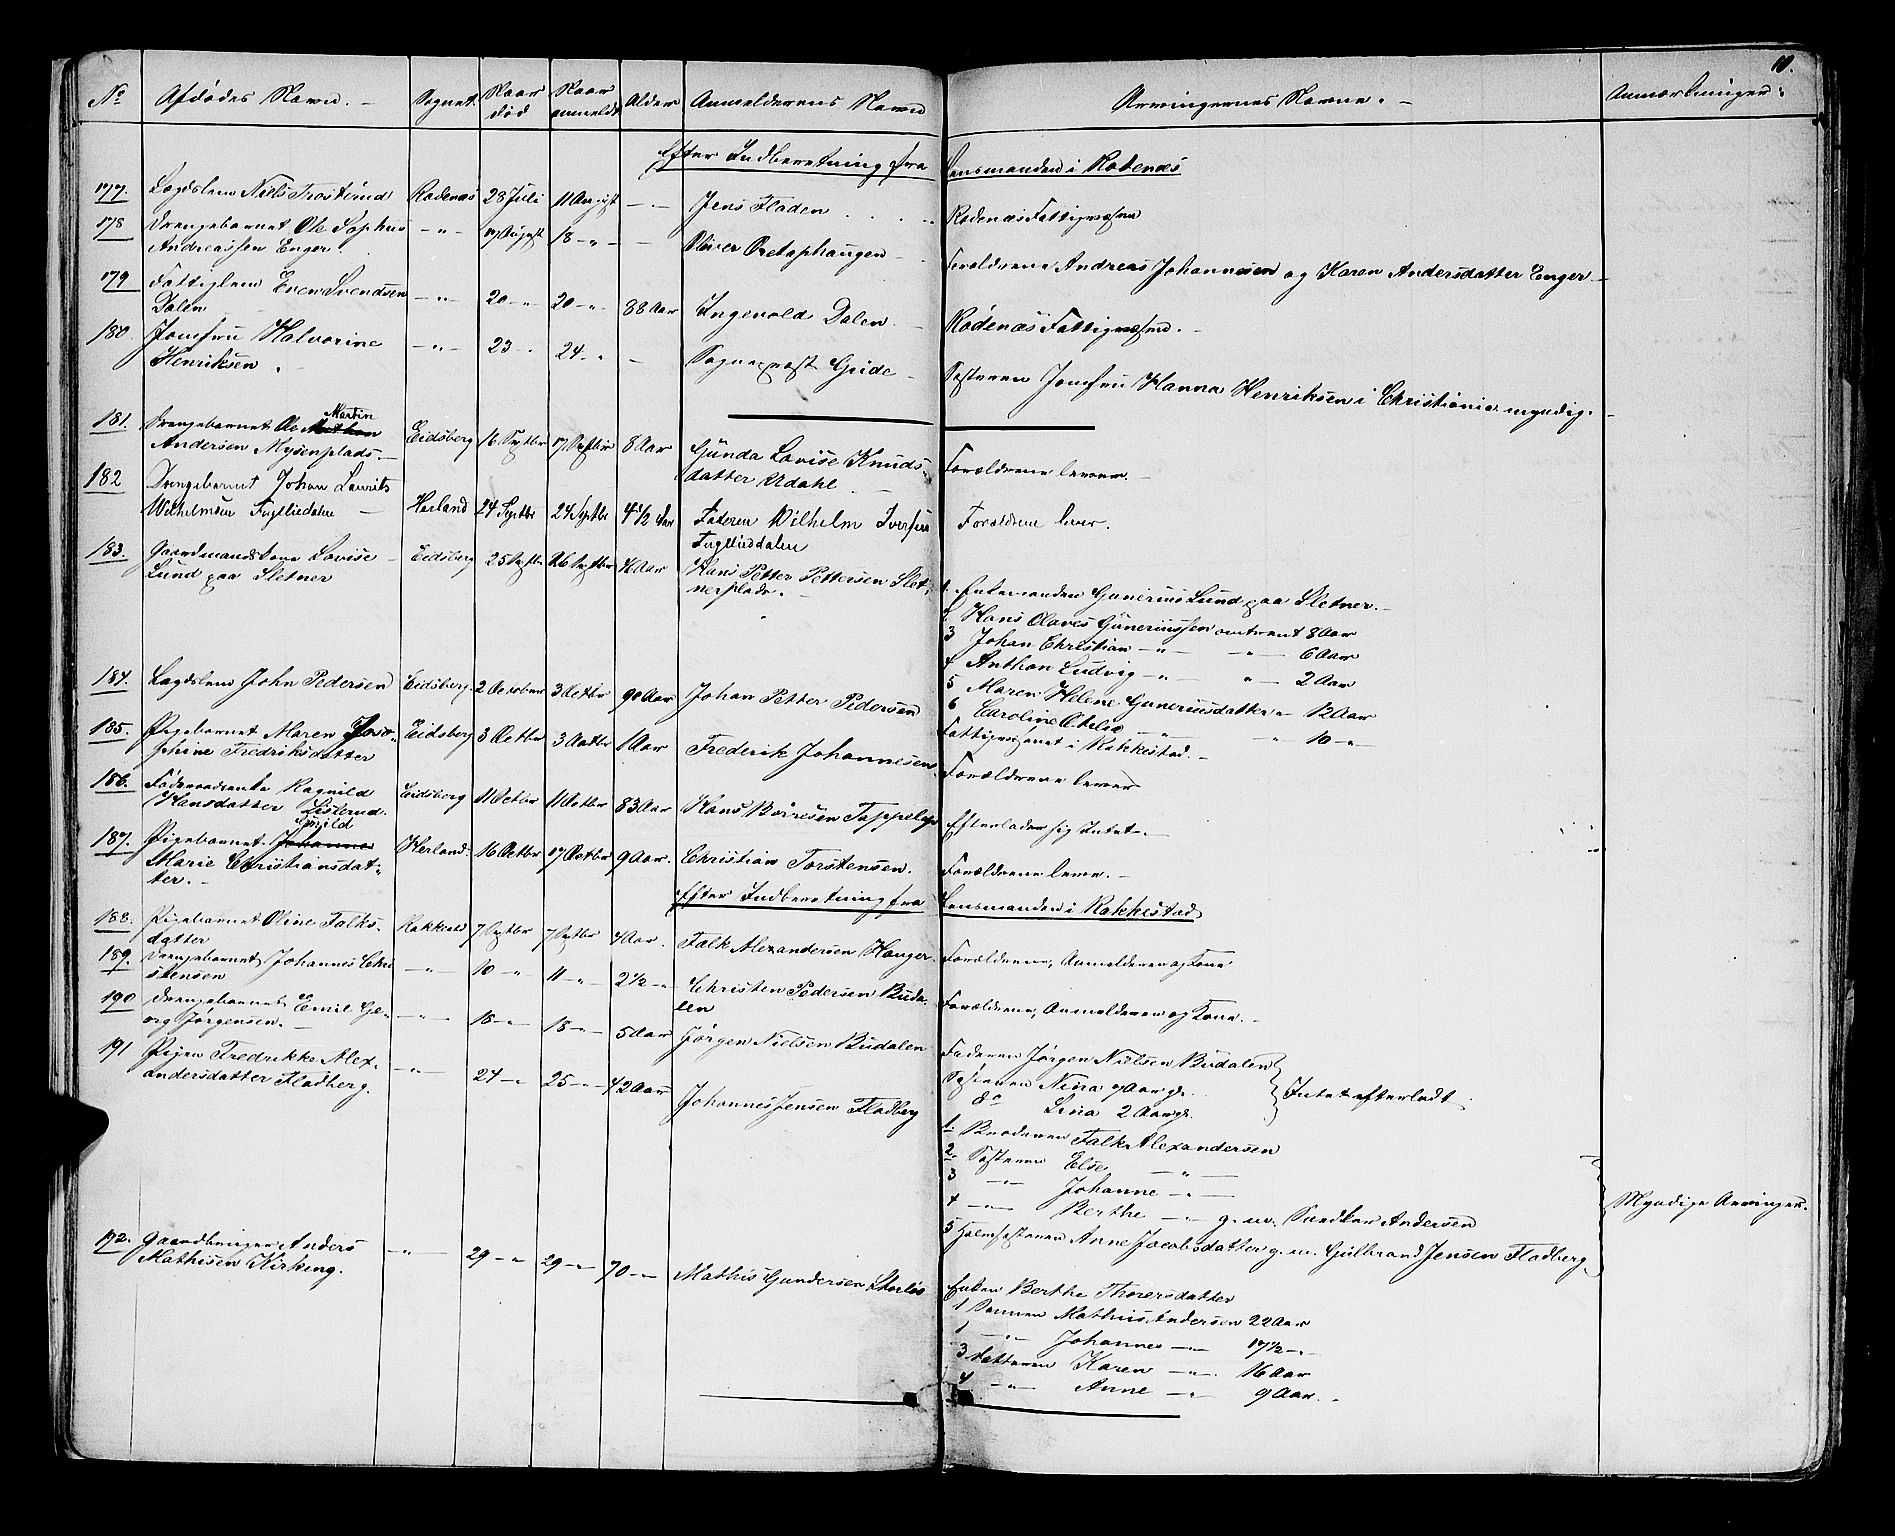 11.
No Afdødes Navn. Sognet. Naar død Naar anmeldt Alder Anmelderens Navn Arvingernes Navne. Anmærkninger.
Efter Indberetning fra Lensmanden i Rødenæs
177. Lægdslem Niels Trosterud Rødenæs 28 Juli 11 August — Jens Fladen Rødenæs Fattigvæsen
178 Drengebarnet Ole Sophus — " — 17 August 18 — " — — Oliver
Andreassen Enger. Forældrene Andreas Johannesen og Karen Andersdatter Enger
179 Fattiglem Even Svendsen — " — 20 — " 20 — " 88 Aar Ingevold Dalen Rødenæs Fattigvæsen.
Dalen
180. Jomfru Halvorine — " — 23 " 24 " — Sogneprest Gride Søsteren Jomfru Hanna Henriksen i Christiania myndig.
Henriksen
181. Drengebarnet Ole Martin Eidsberg 16 Septbr 17 Septbr 8 Aar Gunda Lovise Knuds- Forældrene lever.
Andersen Mysenplads. datter Udahl
182 Drengebarnet Johan Laurits Herland 24 Septbr 24 Septbr 4 1/2 Aar Faderen Wilhelm Iversen Forældrene lever.
Wilhelmsen Fugleedalen Fugleeddalen
183. Gaardmandskone Lovise Eidsberg 25 Septbr 26 Septbr Aar Hans Petter Pettersen Slet-
Lund paa Sletner nerplads.
1. Enkemanden Gunerius Lund paa Sletner.
2 Hans Olaves Guneriussen omtrent 8 Aar
3 Johan Christian — " — " — 6 Aar
4 Anthon Ludvig — " — " — 2 Aar
5 Maren Helene Guneriusdatter " 12 Aar
6 Caroline Otelie — " — " 10 — "
184. Lægdslem John Pedersen Eidsberg. 2 October 3 Octbr 90 Aar Johan Petter Pedersen Fattigvæsenet i Rakkestad.
185. Pigebarnet Maren Jose- Eidsberg 3 Octbr 3 Octbr 1 Aar Frederik Johannesen. Forældrene lever
phine Fredriksdatter
186. Føderaadsenke Ragnild Eidsberg 11 Octbr 11 Octbr 83 Aar Hans Börresen Efterlader sig Intet.
Hansdatter Listerud.
187. Pigebarnet Johanne Herland. 16 Octbr 17 Octbr 9 Aar. Christian Torstensen. Forældrene lever.
Marie Christiansdat-
ter.
Efter Indberetning fra Lensmanden i Rakkestad
188. Pigebarnet Oline Falks- Rakkestd 7 Septbr 7 Septbr 4 Aar. Falk Alexandersen Hauger Forældrene, Anmelderen og Kone
datter
189. Drengebarnet Johannes Chri — " — 10 " 11 — " 2 1/2 — " Christen Pedersen Buda- Forældrene, Anmelderen og Kone.
stensen len
190 Drengebarnet Emil Ge- — " — 18 — " 18 — " 5 Aar Jørgen Nielsen Budalen
org Jørgensen.
Faderen Jørgen Nielsen Budalen
Søsteren Nina 7 Aar gl.
do Lina 2 Aar gl. } Intet efterladt
191 Pigen Fredrikke Alex- — " — 24 — " 25 — " 42 Aar Johannes Jensen Fladberg
andersdatter Fladberg.
1. Broderen Falk Alexandersen
2. Søsteren Else — " —
3 — " Johanne — " —
4 — " — Berthe — " g. m. Andersen
5 Halvsøsteren Anne Jacobsdatter g. m. Gulbrand Jensen Fladberg. } Myndige Arvinger.
192. Gaardbruger Anders — " — 29 — " 29 — " 70 — " Mathis Gundersen
Mathisen Kirkeng.
Enken Berthe Thorersdatter
1 Sønnen Mathis Andersen 22 Aar
— " — Johannes — " 17 1/2 — "
3 Datteren Karen — " 16 Aar
4 — " — Anne — " 9 Aar.